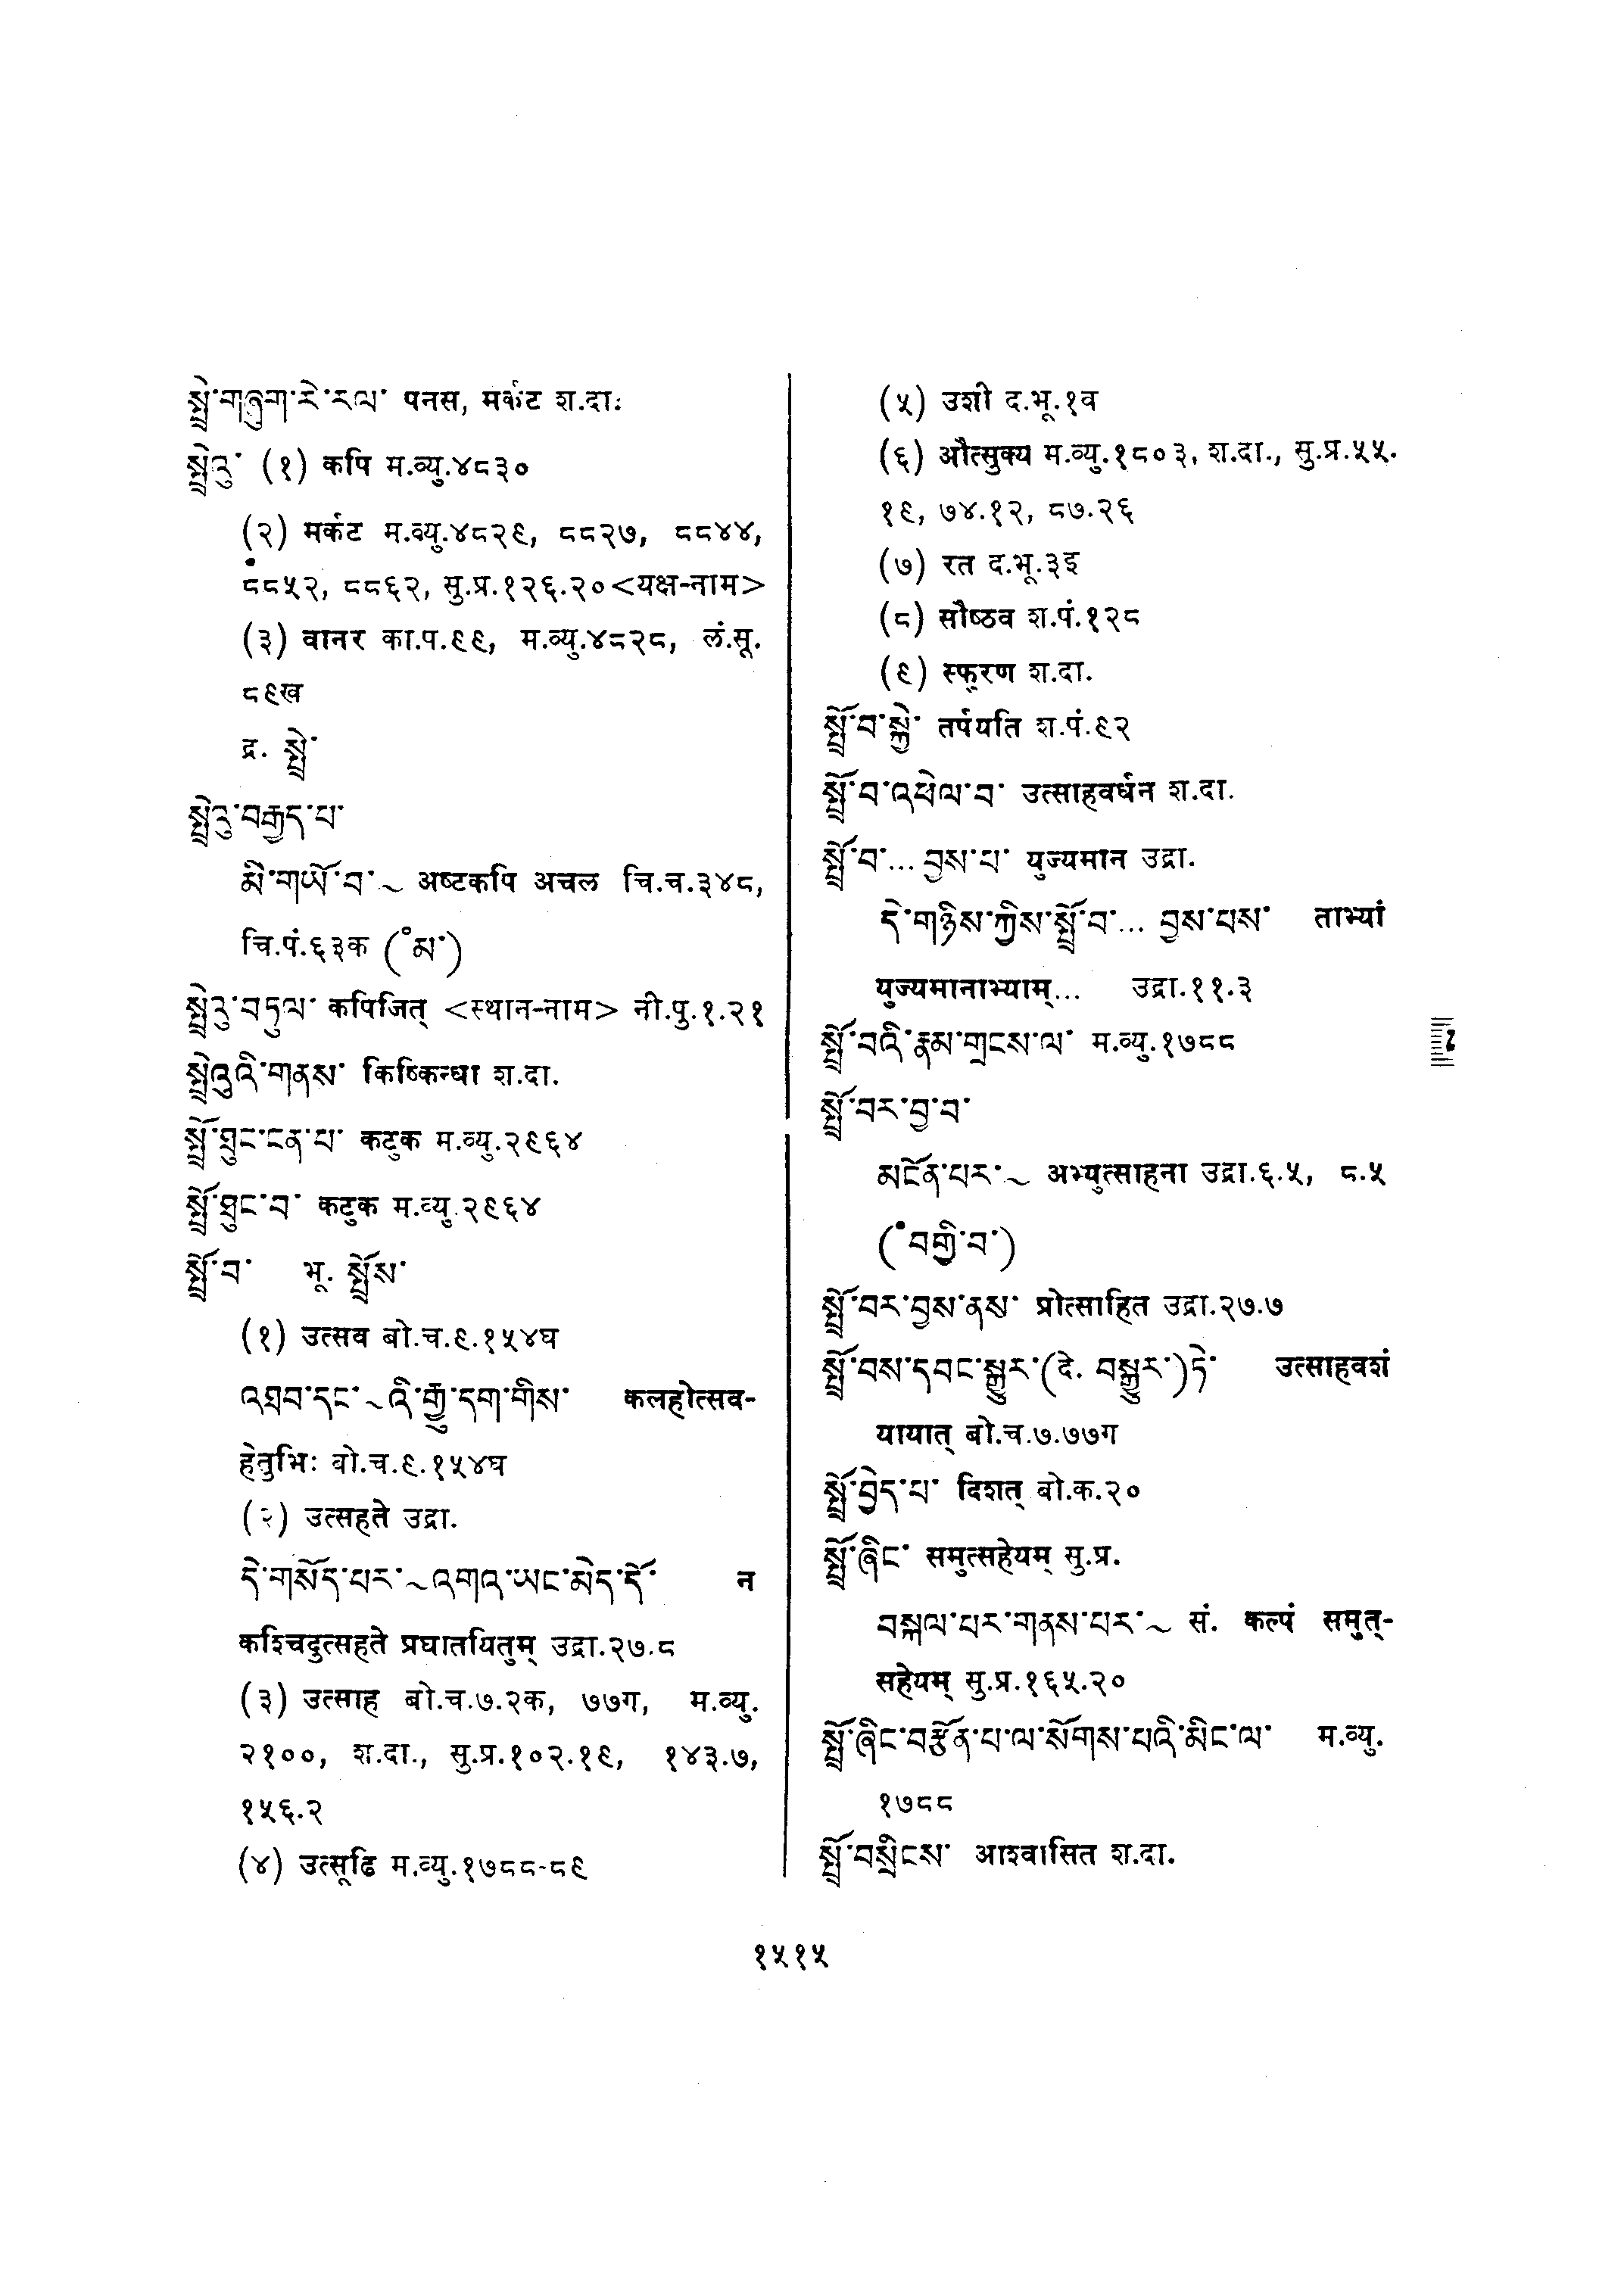 སྤྲེ་གཉུག་རེ་རལ་ पनस, मर्कट श.दा.
སྤྲེའུ་ (१) कपि म.व्यु.४८३०
(२) मर्कट म.व्यु.४८२९, ८८२७, ८८४४,
८८५२, ८८६२, सु.प्र.१२६.२०<यक्ष-नाम>
(३) वानर का.प.९९, म.व्यु.४८२८, लं.सू.
८९ख
द्र. སྤྲེ་
སྤྲེའུ་བརྒྱད་པ་
མི་གཡོ་བ་~ अष्टकपि अचल चि.च.३४८,
चि.पं.६३क (°མ་)
སྤྲེའུ་བཏུལ་ कपिजित् <स्थान-नाम> नी.पु.१.२१
སྤྲེའུའི་གནས་ किष्किन्धा श.दा.
སྤྲོ་ཐུང་ངན་པ་ कटुक म.व्यु.२९६४
སྤྲོ་ཐུང་བ་ कटुक म.व्यु.२९६४
སྤྲོ་བ་ भू. སྤྲོས་
(१) उत्सव बो.च.९.१५४घ
འཐབ་དང་~འི་རྒྱུ་དག་གིས་ कलहोत्सव-
हेतुभिः बो.च.९.१५४घ
(२) उत्सहते उद्रा.
དེ་གསོད་པར་~འགའ་ཡང་མེད་དོ་ न
कश्चिदुत्सहते प्रघातयितुम् उद्रा.२७.८
(३) उत्साह बो.च.७.२क, ७७ग, म.व्यु.
२१००, श.दा., सु.प्र.१०२.१९, १४३.७,
१५६.२
(४) उत्सूढि म.व्यु.१७८८-८९
(५) उशी द.भू.१व
(६) औत्सुक्य म.व्यु.१८०३, श.दा., सु.प्र.५५.
१९, ७४.१२, ८७.२६
(७) रत द.भू.३इ
(८) सौष्ठव श.पं.१२८
(९) स्फुरण श.दा.
སྤྲོ་བ་སྐྱེ་ तर्पयति श.पं.९२
སྤྲོ་བ་འཕེལ་བ་ उत्साहवर्धन श.दा.
སྤྲོ་བ་... བྱས་པ་ युज्यमान उद्रा.
དེ་གཉིས་ཀྱིས་སྤྲོ་བ་... བྱས་པས་ ताभ्यां
युज्यमानाभ्याम्... उद्रा.११.३
སྤྲོ་བའི་རྣམ་གྲངས་ལ་ म.व्यु.१७८८
སྤྲོ་བར་བྱ་བ་
མངོན་པར་~ अभ्युत्साहना उद्रा.६.५, ८.५
(°བགྱི་བ་)
སྤྲོ་བར་བྱས་ནས་ प्रोत्साहित उद्रा.२७.७
སྤྲོ་བས་དབང་སྒྱུར་(दे. བསྒྱུར་)ཏེ་ उत्साहवशं
यायात् बो.च.७.७७ग
སྤྲོ་བྱེད་པ་ दिशत् बो.क.२०
སྤྲོ་ཞིང་ समुत्सहेयम् सु.प्र.
བསྐལ་པར་གནས་པར་~ सं. कल्पं समुत्-
सहेयम् सु.प्र.१६५.२०
སྤྲོ་ཞིང་བརྩོན་པ་ལ་སོགས་པའི་མིང་ལ་ म.व्यु.
१७८८
སྤྲོ་བསྲིངས་ आश्वासित श.दा.
१५१५